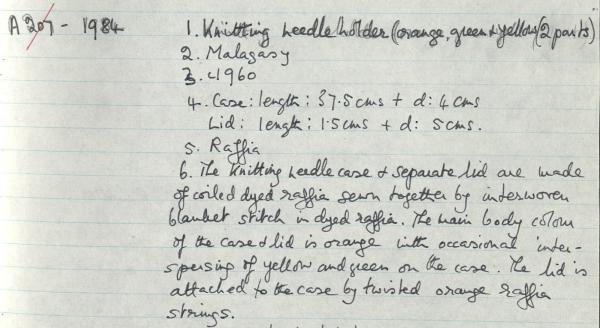 A 207 - 1984
1. Knitting needle holder (orange, green & yellow) (2 parts)
2. Malagasy
3. <1960
4. Case: length: 37.5cms + d: 4cms
Lid: length: 1.5cms + d: 5cms.
5. Raffia
6. The knitting needle case & separate lid are made
of coiled dyed raffia sewn together by interwoven
blanket stitch in dyed raffia. The main body colour
of the case & lid is orange with occasional inter-
spersing of yellow and green on the case. The lid is
attached to the case by twisted orange raffia
strings.